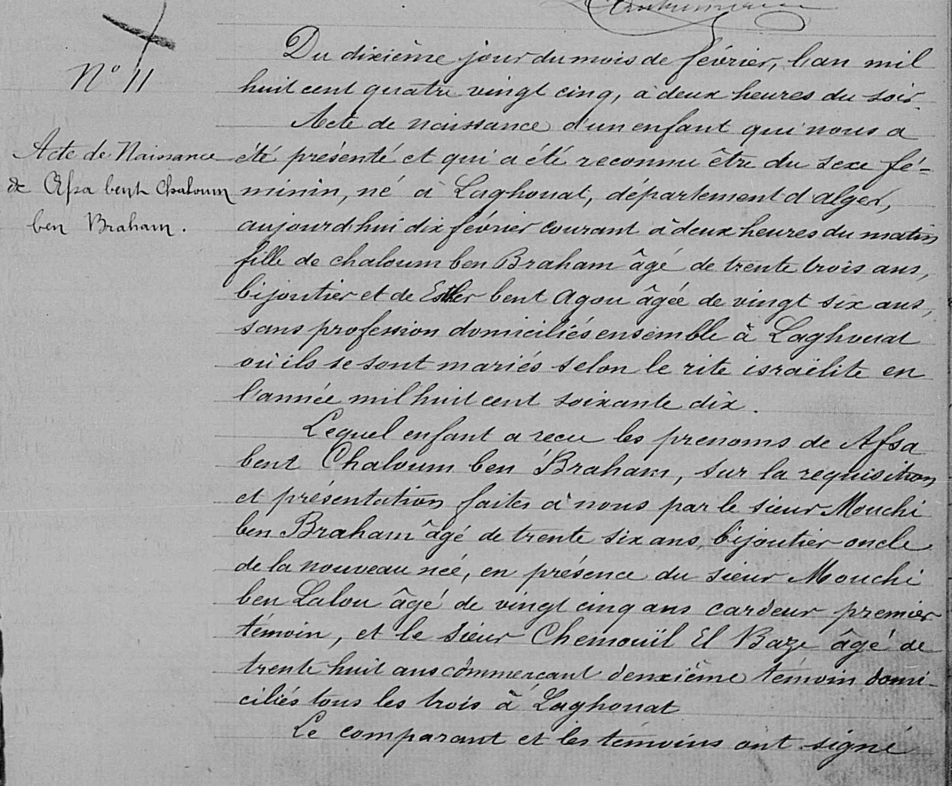 N° 11
Acte de Naissance
de Afsa bent Chaloum
ben Braham.
Du dixième jour du mois de février, l'an mil
huit cent quatre vingt cinq, à deux heures du soir.
Acte de naissance d'un enfant qui nous a
été présenté et qui a été reconnu être du sexe fé-
minin, né à Laghouat, département d'alger,
aujourd'hui dix février courant à deux heures du matin
fille de chaloum ben Braham âgé de trente trois ans,
bijoutier et de Esther bent Agou âgée de vingt six ans,
sans profession domiciliés ensemble à Laghouat
où ils se sont mariés selon le rite israélite en
l'année mil huit cent soixante dix.
Lequel enfant a recu les prenoms de Afsa
bent Chaloum ben Braham, sur la réquisition
et présentation faites à nous par le sieur Mouchi
ben Braham âgé de trente six ans, bijoutier oncle
de la nouveau née, en présence du sieur Mouchi
ben Lalou âgé de vingt cinq ans cardeur premier
témoin, et le sieur Chemouïl El Baze âgé de
trente huit ans commercant deuxième témoin domi-
ciliés tous les trois à Laghouat
Le comparant et les témoins ont signé